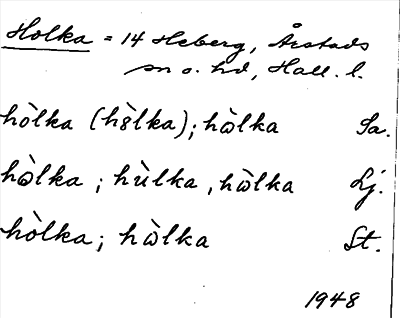 Holka = 14 Heberg, Årstads
sn o. hd, Hall. l.
hòlka (hò̀lka); hὼlka Sa.
hὼlka ; hùlka , hὼlka Lj.
hòlka ; hὼlka St.
1948